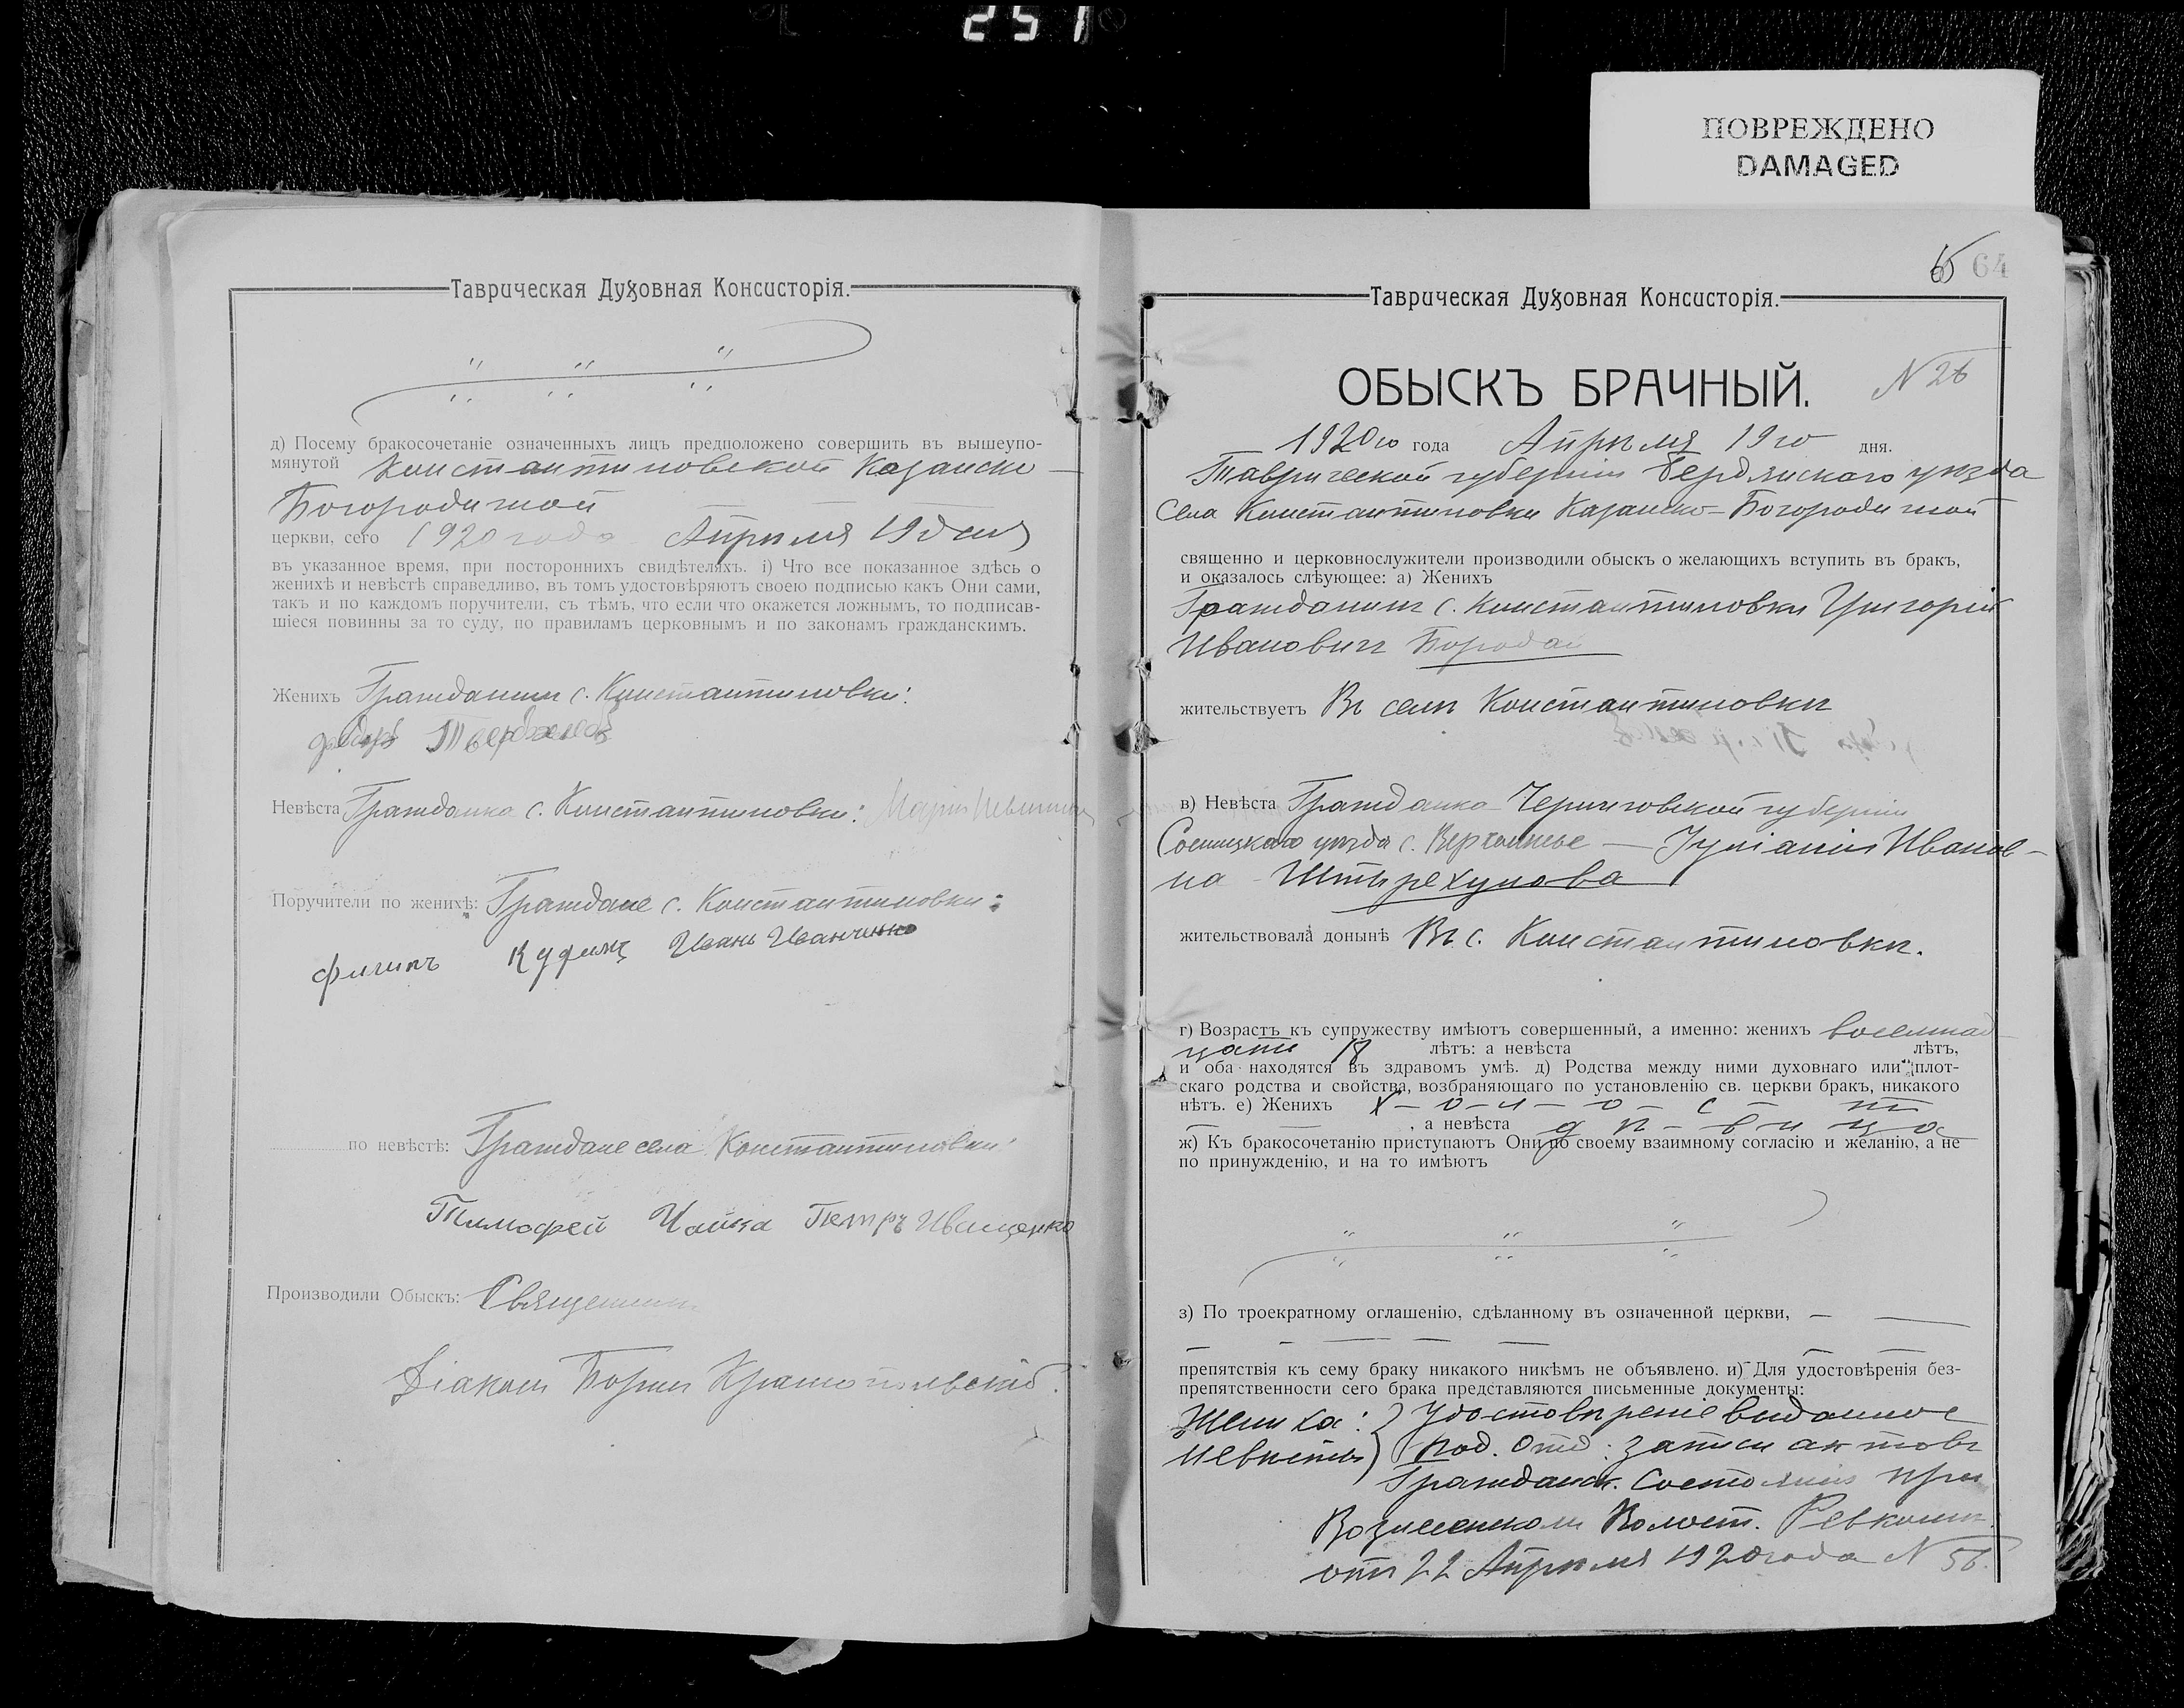 251
ПОВРЕЖДЕНО
DAMAGED
Таврическая Духовная Консисторія.
д) Посему бракосочетаніе означенныхъ лицъ предположено совершить въ вышеупо-
мянутой Константиновской Казанско-
Богородичной
церкви, сего 1920 года Апрѣля 19 дня
въ указанное время, при постороннихъ свидѣтеляхъ. і) Что все показанное здѣсь о
женихѣ и невѣстѣ справедливо, въ томъ удостовѣряютъ своею подписью какъ Они сами,
такъ и по каждомъ поручители, съ тѣмъ, что если что окажется ложнымъ, то подписав-
шіеся повинны за то суду, по правиламъ церковнымъ и по законамъ гражданскимъ.
Женихъ Гражданинъ с. Константиновки:
Невѣста Гражданка с. Константиновки: Марія
Поручители по женихѣ: Граждане с. Константиновки:
Филипъ Иванъ Иванченко
по невѣстѣ: Граждане села Константиновки:
Тимофей Чайка Петръ Иващенко
Производили Обыскъ: Священникъ
Діаконъ Борисъ
64
Таврическая Духовная Консисторія.
ОБЫСКЪ БРАЧНЫЙ. N 26
1920го года Апрѣля 19го дня.
Таврической губерніи Бердянскаго уѣзда
Села Константиновки Казанско-Богородичной
священно и церковнослужители производили обыскъ о желающихъ вступить въ бракъ,
и оказалось слѣующее: а) Женихъ
Гражданинъ с. Константиновки Григорій
Ивановичъ Бородай
жительствуетъ Въ селѣ Константиновкѣ
в) Невѣста Гражданка Черниговской губерніи
Сосницкаго уѣзда с. Іуліанія Иванов-
на
жительствовала донынѣ Въ с. Константиновкѣ.
г) Возрастъ къ супружеству имѣютъ совершенный, а именно: женихъ восемнад-
цати 18 лѣтъ: а невѣста лѣтъ,
и оба находятся въ здравомъ умѣ. д) Родства между ними духовнаго или плот-
скаго родства и свойства, возбраняющаго по установленію св. церкви бракъ, никакого
нѣтъ. е) Женихъ х-о-л-о-с-т
, а невѣста д ѣ-в и ц а
ж) Къ бракосочетанію приступаютъ Они по своему взаимному согласію и желанію, а не
по принужденію, и на то имѣютъ
з) По троекратному оглашенію, сдѣланному въ означенной церкви,
препятствія къ сему браку никакого никѣмъ не объявлено. и) Для удостовѣренія без-
препятственности сего брака представляются письменные документы:
Жениха: } Удостовѣреніе выданное
Невѣсты } под. Отд: записи актовъ
Гражданск. Состоянія при
Вознесенскомъ Волост. Ревкомѣ
отъ 22 Апрѣля 1920 года N 56.